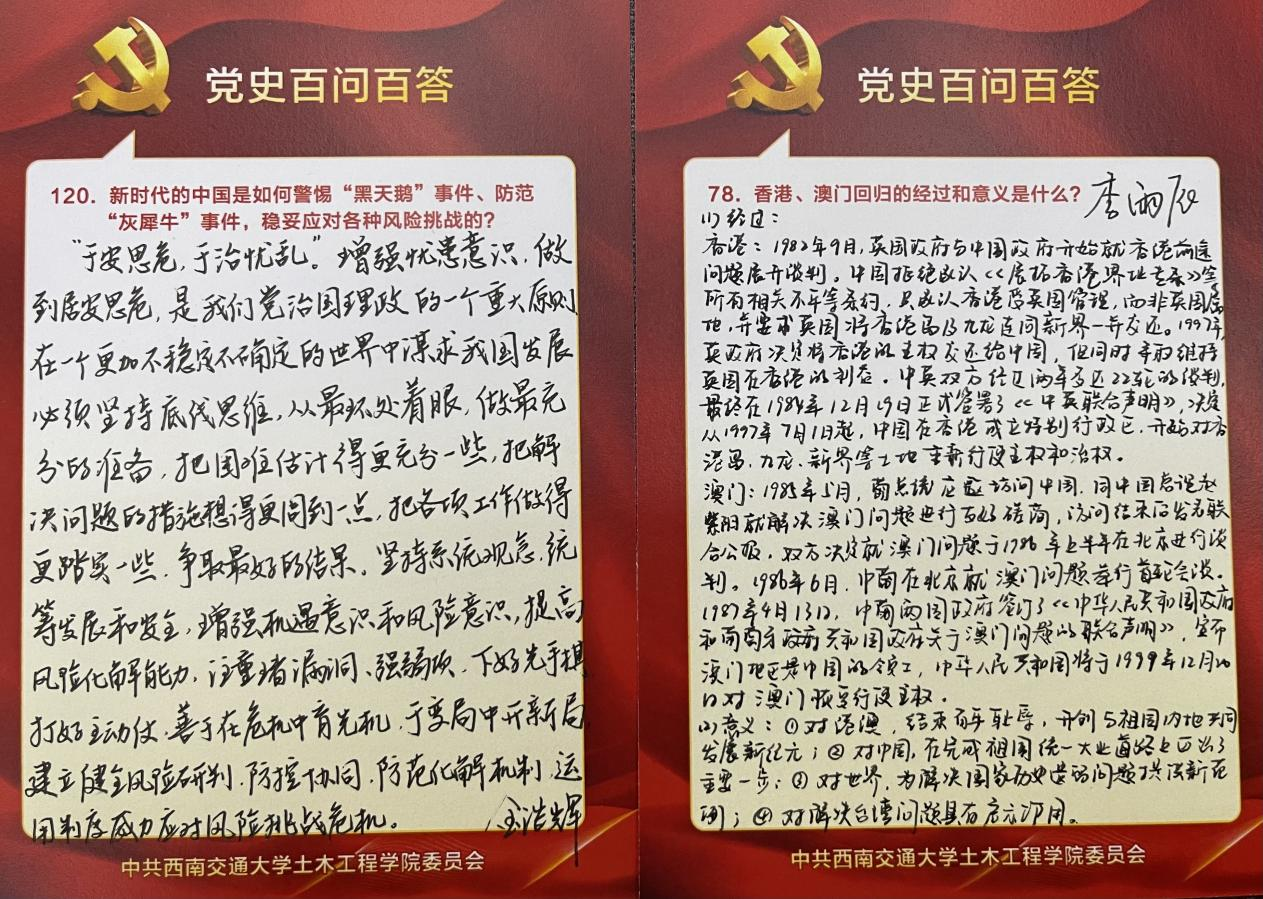 党史百问百答
120. 新时代的中国是如何警惕“黑天鹅”事件、防范
“灰犀牛”事件，稳妥应对各种风险挑战的？
“于安思危，于治忧乱。”增强忧患意识，做
到居安思危，是我们党治国理政的一个重大原则
在一个更加不稳定不确定的世界中谋求我国发展
必须坚持底线思维，从最坏处着眼，做最充
分的准备，把困难估计得更充分一些，把解
决问题的措施想得更周到一点，把各项工作做得
更踏实一些，争取最好的结果。坚持系统观念，统
筹发展和安全，增强机遇意识和风险意识，提高
风险化解能力，注重堵漏洞、强弱项，下好先手棋
打好主动仗，善于在危机中育先机，于变局中开新局
建立健全风险研判、防控协同、防范化解机制，运
用制度威力应对风险挑战危机。
金浩辉
中共西南交通大学土木工程学院委员会
党史百问百答
78. 香港、澳门回归的经过和意义是什么？
李雨辰
(1)经过：
香港：1982年9月，英国政府与中国政府开始就香港前途
问题展开谈判。中国拒绝承认《展拓香港界址专条》等
所有相关不平等条约，只承认香港受英国管理，而非英国属
地，并要求英国将香港岛及九龙连同新界一并交还。1997年，
英政府决定将香港的主权交还给中国，但同时争取维持
英国在香港的利益。中英双方经过两年多达22轮的谈判，
最终在1984年12月19日正式签署了《中英联合声明》，决定
从1997年7月1日起，中国在香港成立特别行政区，开始对香
港岛、九龙、新界等土地重新行使主权和治权。
澳门：1985年5月，葡总统应邀访问中国，同中国总理赵
紫阳就解决澳门问题进行友好磋商，访问结束后发表联
合公报，双方决定就澳门问题于1986年上半年在北京进行谈
判。1986年6月，中葡在北京就澳门问题举行首轮会谈。
1987年4月13日，中葡两国政府签订了《中华人民共和国政府
和葡萄牙政府共和国政府关于澳门问题的联合声明》，宣布
澳门地区是中国的领土，中华人民共和国将于1999年12月20
日对澳门恢复行使主权。
(2)意义：①对港澳，结束百年耻辱，开创与祖国内地共同
发展新纪元；②对中国，在完成祖国统一大业道路上迈出了
重要一步；③对世界，为解决国家历史遗留问题提供新范
例；④对解决台湾问题具有启示作用。
中共西南交通大学土木工程学院委员会